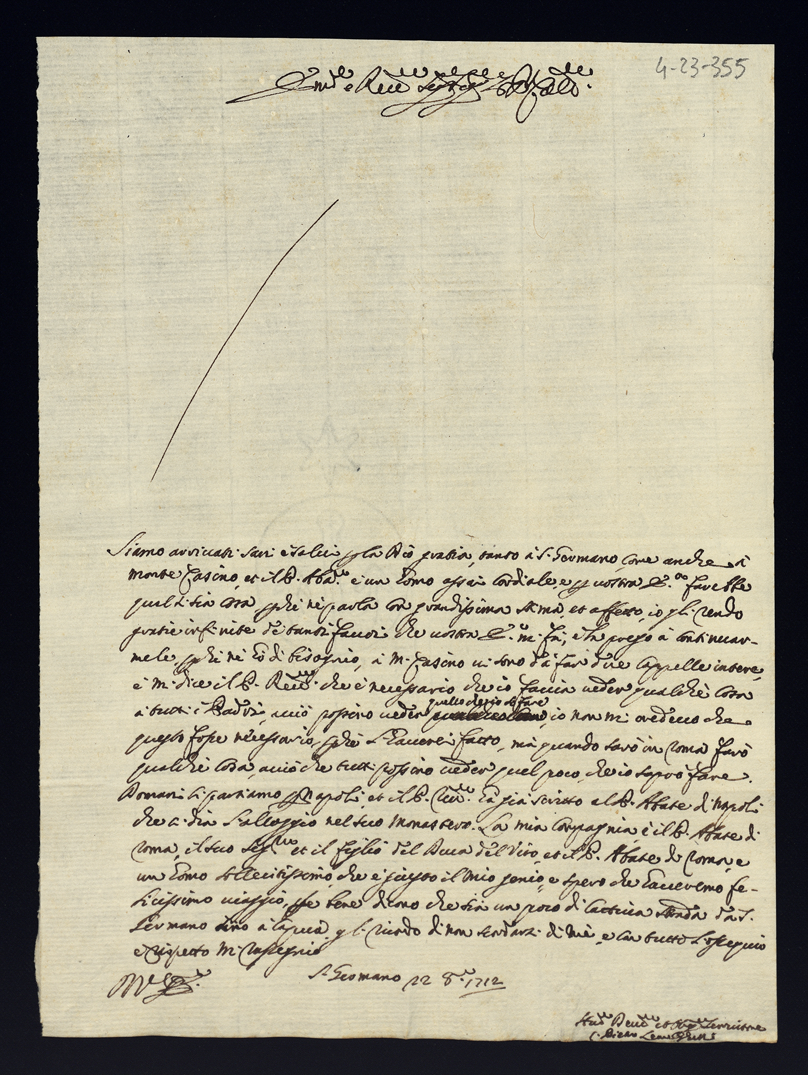 4-23-355
Siamo arrivati sani e salvi per la Dio gratia, tanto à S. Germano, come anche à
Monte Casino et il P. Aba.te è un homo assai cordiale, e per vostra farebbe
qual si sia cosa perché ne parla con grandissima stima et affetto, io gli rendo
gratie infinite de tanti favori che vostra mi fà, e la prego à continuar-
mele, perché ne hò di bisognio, à M. Casino vi sono dà far due Cappelle intere,
e mi dice il P. che è necessario che io faccia veder qualche cosa
à tutti i Padri, acciò possino veder quello che io sò fare, io non mi credevo che
questo fosse necessario, perché l'haverei fatto, mà quando sarò in Roma farò
qualche cosa acciò che tutti possino veder quel poco, che io saprò fare.
Domani si partiamo per Napoli, et il P. hà già scritto al P. Abate di Napoli
che ci dia l'alloggio nel suo monastero. La mia Compagnia è il P. Abate di
Roma, il suo et il figlio del Duca del Vito, et il P. Abate di Roma, è
un homo sollecitissimo, che è giusto il mio genio, e spero che haveremo fe-
licissimo viaggio, se bene dicono che sia un poco di cattiva strada dà S.
Germano sino à Capua, gli ricordo di non scordarsi di me, e con tutto l'ossequio
e rispetto mi rassegnio
S. Germano 22 8.bre 1712